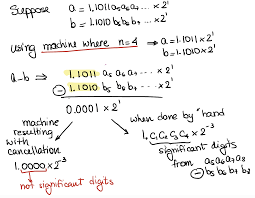 Suppose a = 1.1011a₅a₆a₇... × 2¹
b = 1.1010 b₅b₆b₇... × 2¹
using machine where n=4 ⇒ a=1.1011×2¹
b=1.1010×2¹
a-b ⇒ 1.1011 a₅ a₆ a₇ ... × 2¹
⊖ 1.1010 b₅ b₆ b₇ ... × 2¹
0.0001 × 2¹
machine resulting with cancellation
1.0000 × 2⁻³
not significant digits
when done by "hand
1.C₁C₂C₃C₄ × 2⁻³
significant digits
from a₅a₆a₇a₈
⊖ b₅b₆b₇b₈